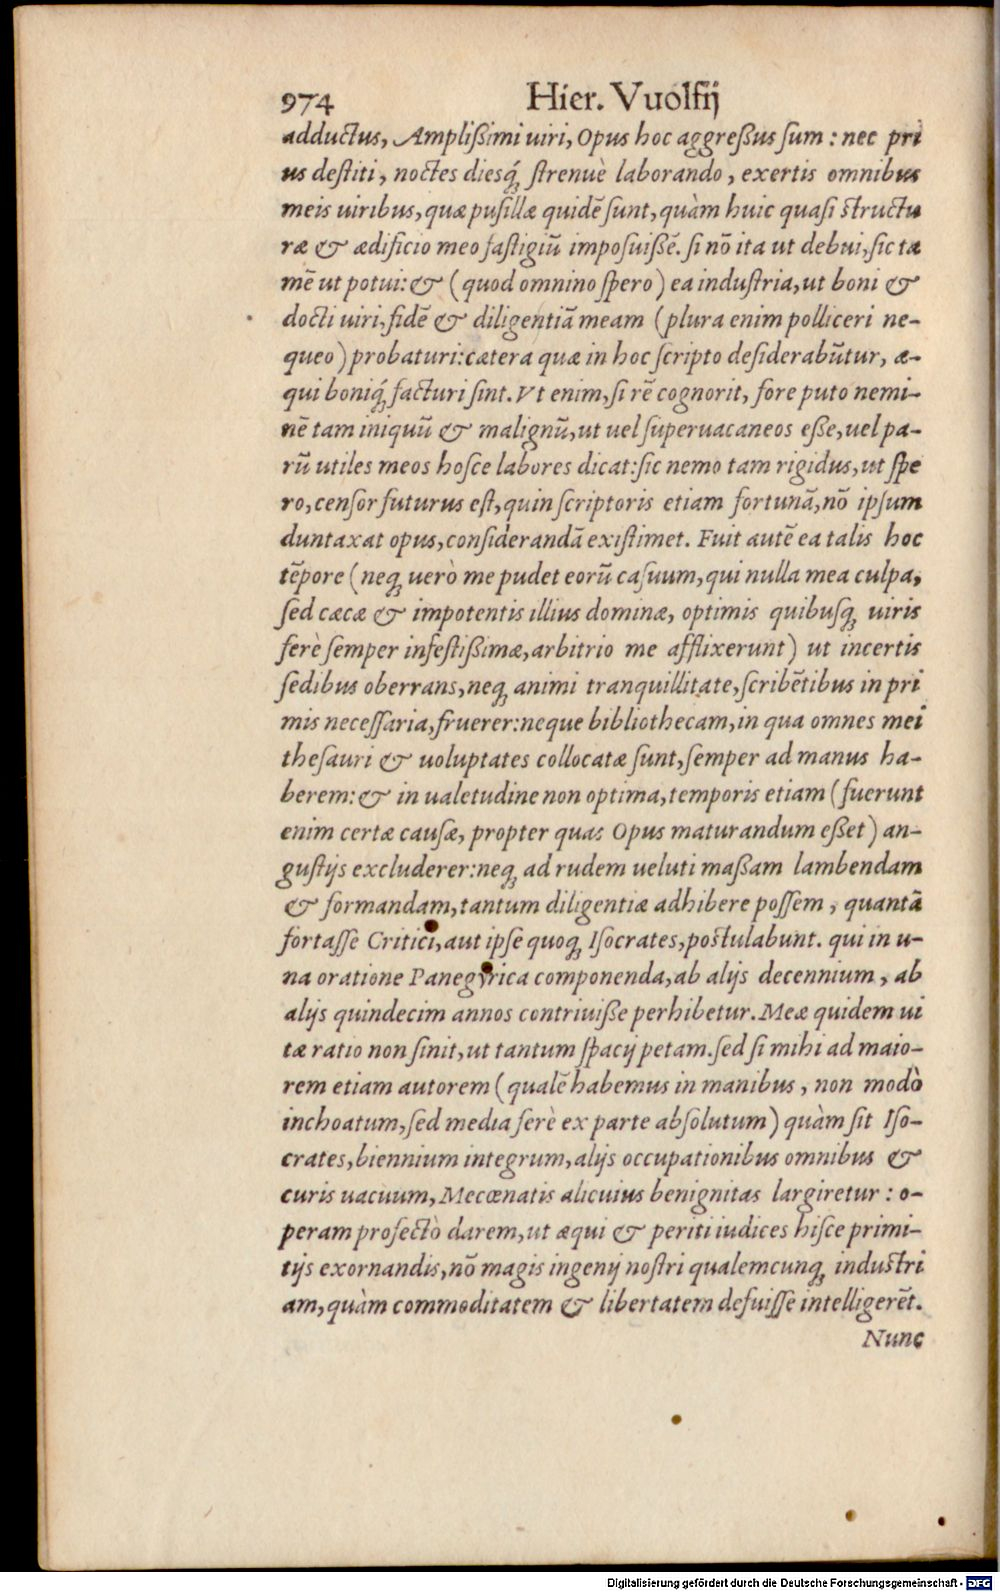 974 Hier. Vuolfij
adductus, Amplißimi uiri, Opus hoc aggreßus sum : nec pri
us destiti, noctes diesq́; strenuè laborando, exertis omnibus
meis uiribus, quæ pusillæ quidē sunt, quàm huic quasi structu
ræ & ædificio meo fastigiū imposuißē. si nō ita ut debui, sic ta
mē ut potui: & (quod omnino spero) ea industria, ut boni &
docti uiri, fidē & diligentiā meam (plura enim polliceri ne-
queo) probaturi: cætera quæ in hoc scripto desiderabūtur, æ-
qui boniq́; facturi sint. Vt enim, si rē cognorit, fore puto nemi-
nē tam iniquū & malignū, ut uel superuacaneos eße, uel pa-
rū utiles meos hosce labores dicat: sic nemo tam rigidus, ut spe
ro, censor futurus est, quin scriptoris etiam fortunā, nō ipsum
duntaxat opus, considerandā existimet. Fuit autē ea talis hoc
tēpore (neq; uerò me pudet eorū casuum, qui nulla mea culpa,
sed cæcæ & impotentis illius dominæ, optimis quibusq; uiris
ferè semper infestißimæ, arbitrio me afflixerunt) ut incertis
sedibus oberrans, neq; animi tranquillitate, scribētibus in pri
mis necessaria, fruerer: neque bibliothecam, in qua omnes mei
thesauri & uoluptates collocatæ sunt, semper ad manus ha-
berem: & in ualetudine non optima, temporis etiam (fuerunt
enim certæ causæ, propter quas Opus maturandum eßet) an-
gustijs excluderer: neq; ad rudem ueluti maßam lambendam
& formandam, tantum diligentiæ adhibere possem, quantā
fortasse Critici, aut ipse quoq; Isocrates, postulabunt. qui in u-
na oratione Panegyrica componenda, ab alijs decennium, ab
alijs quindecim annos contriuiße perhibetur. Meæ quidem ui
tæ ratio non sinit, ut tantum spacij petam. sed si mihi ad maio-
rem etiam autorem (qualē habemus in manibus, non modò
inchoatum, sed media ferè ex parte absolutum) quàm sit Iso-
crates, biennium integrum, alijs occupationibus omnibus &
curis uacuum, Mecœnatis alicuius benignitas largiretur : o-
peram profectò darem, ut æqui & periti iudices hisce primi-
tijs exornandis, nō magis ingenij nostri qualemcunq; industri
am, quàm commoditatem & libertatem defuisse intelligerēt.
Nunc
Digitalisierung gefördert durch die Deutsche Forschungsgemeinschaft - DFG